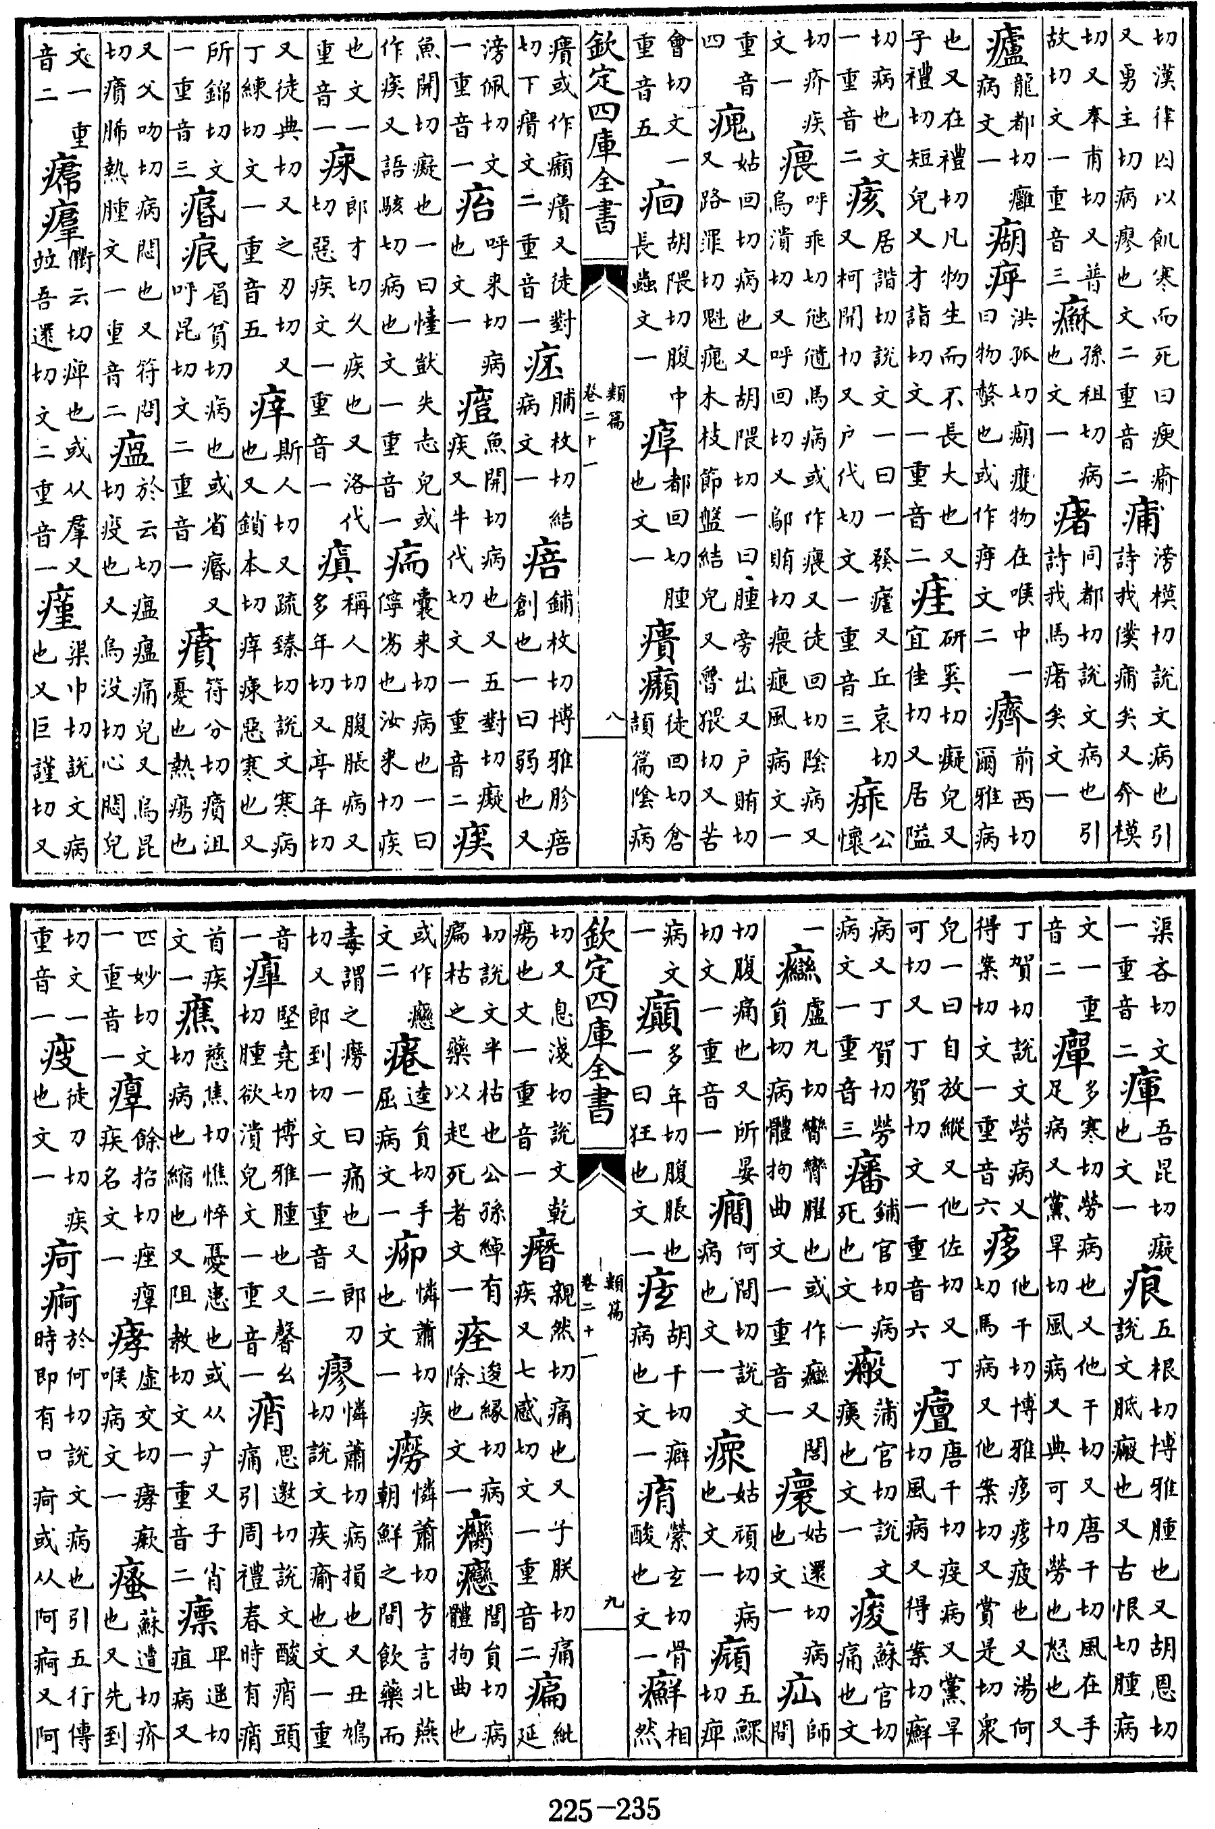 切漢律囚以飢寒而死曰瘐瘉又勇主切病瘳也文二重音二痡滂模切說文病也引詩我僕痡矣又奔模
切又奉甫切又普故切文一重音三孫祖切病也文一瘏同都切說文病也引詩我馬瘏矣文一
龍都切癰病文一洪孤切物在喉中一曰物螫也或作文二癠前西切爾雅病
也又在禮切凡物生而不長大也又子禮切短皃又才詣切文一重音二研奚切癡皃又宜佳切又居隘
切病也文一重音二痎居諧切說文一曰一發瘧又丘哀切又柯開切又戶代切文一重音三公懷
切疥疾文一呼乖切馬病或作又徒回切陰病又烏潰切又呼回切又鄔賄切風病文一
重音四瘣姑回切病也又胡隈切一曰腫旁出又戶賄切又路罪切魁瘣木枝節盤結皃又魯猥切又苦
會切文一重音五痐胡隈切腹中長蟲文一都回切腫也文一㿉徒回切倉頡篇陰病
欽定四庫全書 類篇卷二十一 八
㿉或作癩㿉又徒對切下㿉文二重音一脯枚切結病文一㾦鋪枚切博雅胗㾦創也一曰弱也又
滂佩切文一重音一呼來切病也文一魚開切病也又五對切癡疾又牛代切文一重音二
魚開切癡也一曰失志皃或作又語駭切病也文一重音一囊來切病也一曰儜劣也汝來切疾
也文一重音一郎才切久疾也又洛代切惡疾文一重音一瘨稱人切腹脹病又多年切又亭年切
又徒典切又之刃切又丁練切文一重音五斯人切又疏臻切說文寒病也又鎖本切惡寒也又
所錦切文一重音三眉貧切病也或省又呼昆切文二重音一符分切沮憂也熱瘍也
又父吻切病悶也又符問切熱腫文一重音二瘟於云切瘟痛皃又烏昆切疫也又烏沒切心悶皃
文一重音二衢云切痺也或从羣又竝吾還切文二重音一瘽渠巾切說文病也又巨謹切又
渠吝切文一重音二吾昆切癡也文一痕五根切博雅腫也又胡恩切說文胝瘢也又古恨切腫病
文一重音二癉多寒切勞病也又他干切又唐干切風在手足病又黨旱切風病又典可切勞也怒也又
丁賀切說文勞病又得案切文一重音六㾋他千切博雅㾋㾋疲也又湯何切馬病又他案切又賞是切衆
皃一曰自放縱又他佐切又丁可切又丁賀切文一重音六唐干切疫病又黨旱切風病又得案切癬
病又丁賀切勞病文一重音三鋪官切病死也文一瘢蒲官切說文痍也文一痠蘇官切痛也文
一盧丸切臠臠臞也或作又閭員切病體拘曲文一重音一姑還切病也文一疝師閒
切腹痛也又所晏切文一重音一癇何間切說文病也文一姑頑切病也文一五鰥切痺
病文一癲多年切腹脹也一曰狂也文一痃胡千切癖病也文一縈玄切骨酸也文一癬相然
欽定四庫全書 類篇卷二十一 九
切又息淺切說文乾瘍也文一重音一親然切痛也又子朕切痛疾又七感切文一重音二㾫紕延
切說文半枯也公孫綽有㾫枯之藥以起死者文一痊逡緣切病除也文一閭員切病體拘曲也
或作文二逵員切手屈病文一憐蕭切疾也文一癆憐蕭切方言北燕朝鮮之間飲藥而
毒謂之癆一曰痛也又郎刀切又郎到切文一重音二瘳憐蕭切病損也又丑鳩切說文疾瘉也文一重
音一堅堯切博雅腫也又馨幺切腫欲潰皃文一重音一痟思邀切說文酸痟頭痛引周禮春時有痟
首疾文一癄慈焦切憔悴憂患也或从疒又子肖切病也縮也又阻教切文一重音二瘭卑遥切疽病又
匹妙切文一重音一餘招切痤疾名文一虛交切㾖瘷喉病文一瘙蘇遭切疥也又先到
切文一重音一徒刀切疾也文一疴痾於何切說文病也引五行傳時即有口疴或从阿痾又阿
225–235